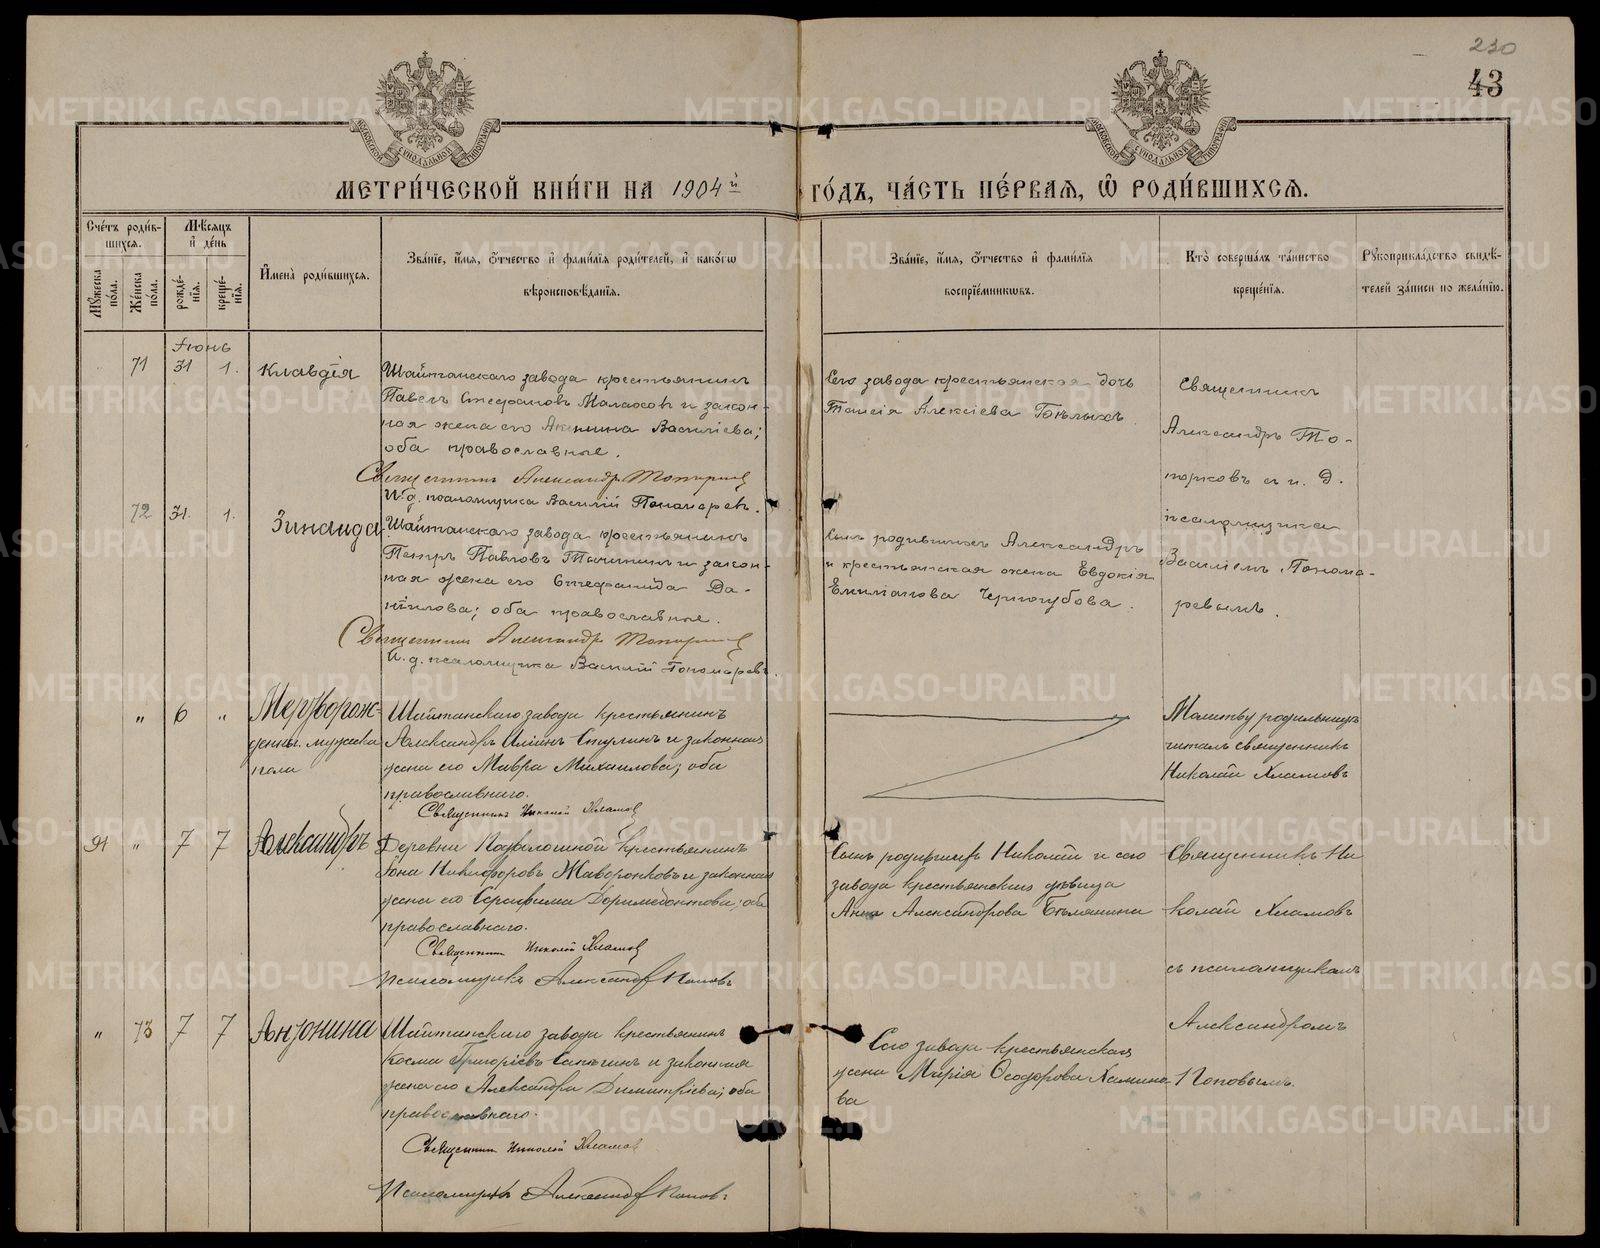 230
43
МЕТРИ́ЧЕСКОЙ КНИ́ГИ НА 1904й ГО́ДЪ, ЧА́СТЬ ПЕ́РВАЯ, Ѽ РОДИ́ВШИХСѦ.
Сче́тъ роди́в-
шихся.
Мѣ́сяцъ
и҆ де́нь
Мꙋ́жеска по́ла.
Же́нска по́ла.
рожде́-
нїя.
креще́-
нїя.
И҆мена̀ роди́вшихся.
Зва́нїе, и҆́мя, ѻ҆́тчество и҆ фами́лїя роди́телей, и҆ како́гѡ
вѣроисповѣ́данїя.
Зва́нїе, и҆́мя, ѻ҆́тчество и҆ фами́лїя
воспрїе́мникѡвъ.
Кто̀ соверша́лъ та́инство
креще́нїя.
Рꙋкоприкла́дство свидѣ́-
телей за́писи по жела́нїю.
Іюнь
71 31 1. Клавдія
Шайтанскаго завода крестьянинъ
Павелъ Стефановъ Малаховъ и закон-
ная жена его Акинина Василіева;
оба православные.
Священникъ Александръ Топорковъ
И. д. псаломщика Василій Пономаревъ.
Сего завода крестьянская дочь
Таисія Алексіева
Священникъ
Александръ То-
порковъ съ и. д.
псаломщика
Василіемъ Понома-
ревымъ.
72 31. 1. Зинаида
Шайтанскаго завода крестьянинъ
Петръ Павловъ и закон-
ная жена его Стефанида Да-
ніилова; оба православные.
Священникъ Александръ Топорковъ
И. д. псаломщика Василій Пономаревъ.
Сынъ родившихъ Александръ
и крестьянская жена Евдокія
Емиліанова Черногубова.
" 6 " Мертворож-
денн. мужска
пола
Шайтанскаго завода крестьянинъ
Александръ Иліинъ и законная
жена его Мавра Михаилова; оба
православнаго.
Священникъ Николай Хламовъ
Молитву родильницѣ
читалъ священникъ
Николай Хламовъ
91 " 7 7 Александръ
Деревни Подволошной крестьянинъ
Іона Никифоровъ Жаворонковъ и законная
жена его Серафима Доримедонтова; оба
православнаго.
Священникъ Николай Хламовъ
Псаломщикъ Александръ Поповъ
Сынъ родившихъ Николай и сего
завода крестьянская дѣвица
Анна Александрова Бѣлянина
Священникъ Ни
колай Хламовъ
съ псаломщикомъ
Александромъ
Поповымъ.
" 73 7 7 Антонина
Шайтанскаго завода крестьянинъ
Косма Григоріевъ и законная
жена его Александра Димитріева; оба
православнаго.
Священникъ Николай Хламовъ
Псаломщикъ Александръ Поповъ
Сего завода крестьянская
жена Марія Ѳеодорова Хамино-
ва
METRIKI.GASO-URAL.RU